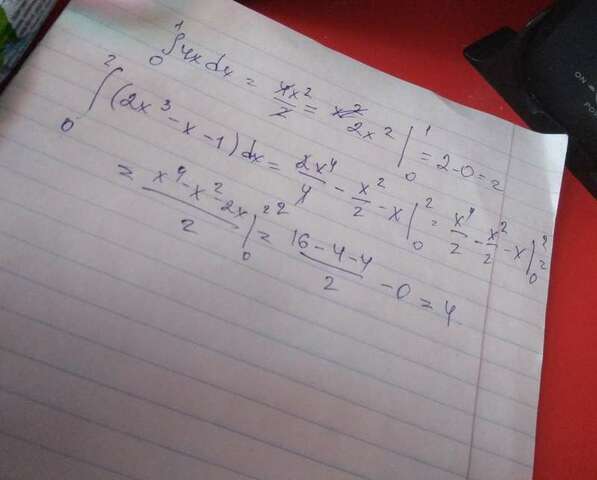 ∫₀¹ 4x dx = 4x²/2 = 2x² |₀¹ = 2-0=2
∫₀² (2x³-x-1)dx = 2x⁴/4 - x²/2 - x |₀² = x⁴/2 - x²/2 - x |₀² =
= x⁴-x²-2x/2 |₀² = 16-4-4/2 - 0 = 4
ON